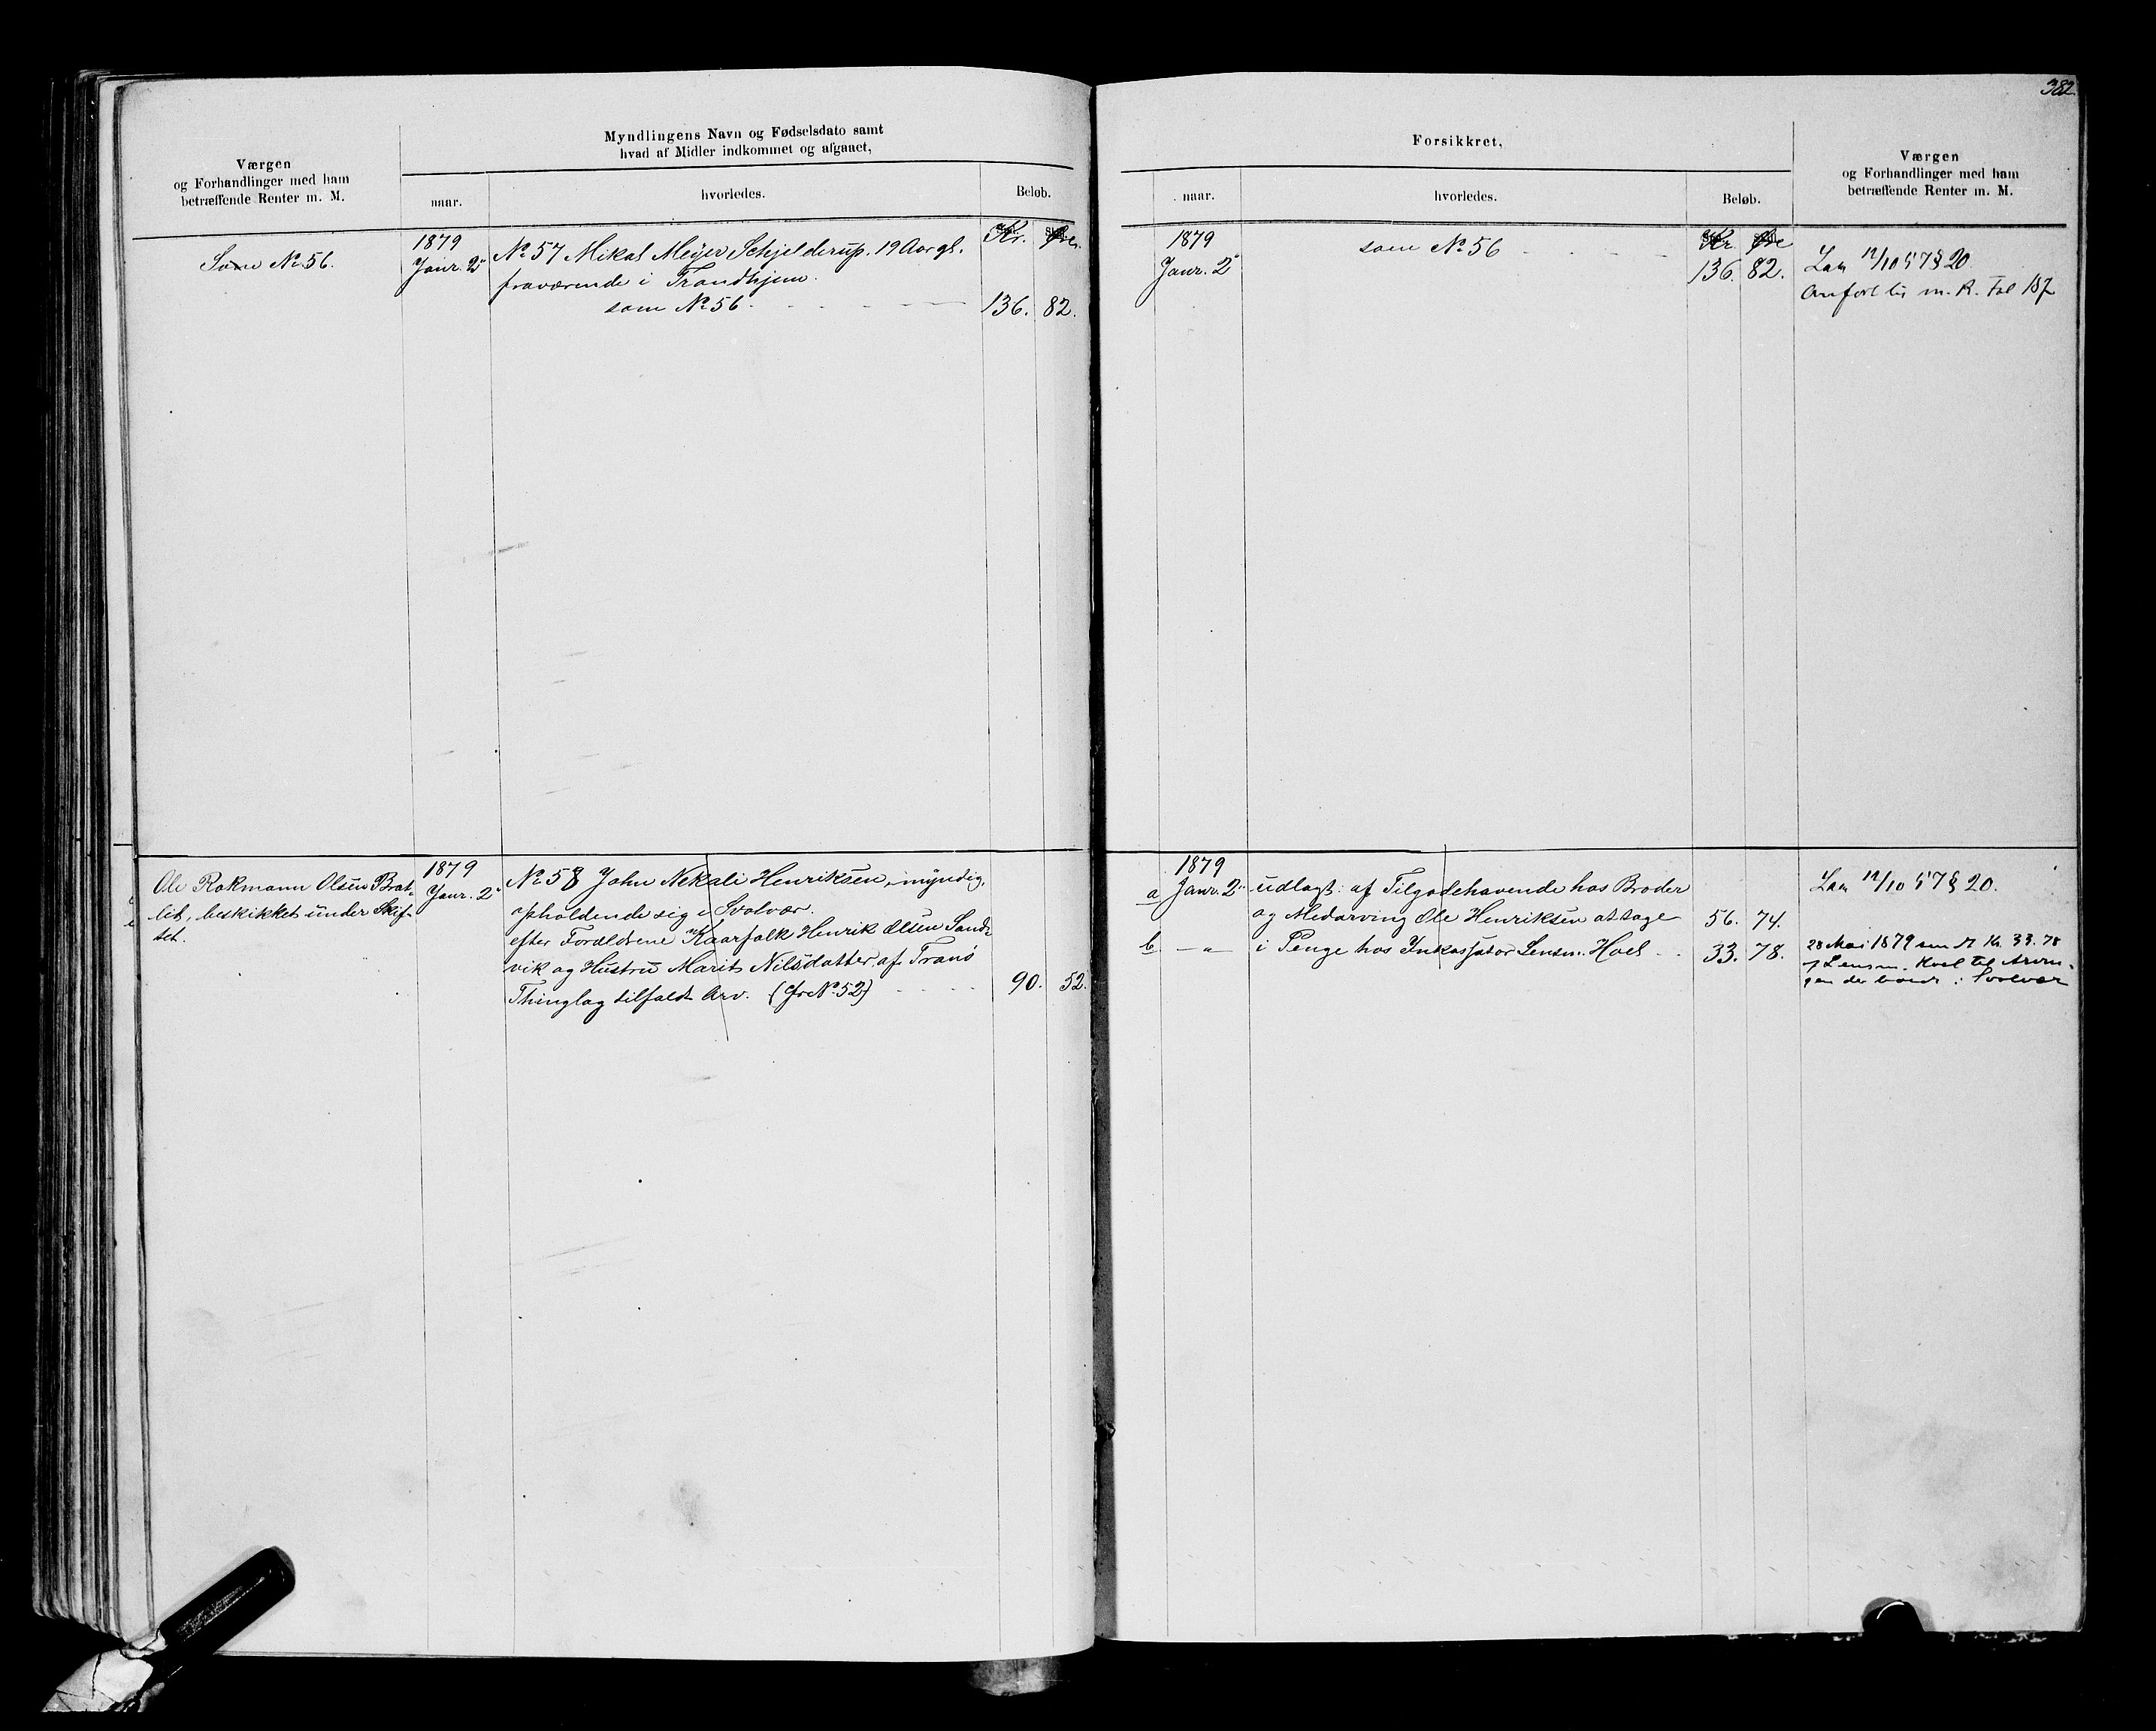 382.
Værgen
og Forhandlinger med ham
betræffende Renter m. M.
Myndlingens Navn og Fødselsdato samt
hvad af Midler indkommet og afgaaet,
naar.
hvorledes.
Beløb.
Kr. Øre.
Som No 56.
1879
Janr. 2
No 57 Mikal Meyer Schjelderup. 19 Aar gl.
fraværende i Trondhjem.
som No 56 136. 82.
Ole Rokmann Olsen Brat-
lid, beskikket under Skif-
tet.
1879
Janr. 2
No 58 John Nekali Henriksen, myndig,
opholdende sig i Svolvær.
efter Forældrene Kaarfolk Henrik Olsen Sand-
vik og Hustru Marit Nilsdatter af Tranø
Thinglag tilfaldt Arv. (cfr No 52) 90. 52.
Forsikkret,
naar.
hvorledes.
Beløb.
Værgen
og Forhandlinger med ham
betræffende Renter m. M.
Kr. Øre
1879
Janr. 2
som No 56
136. 82.
Lav 12/10 57 § 20
Anført i m. R. Fol 187
1879
a Janr. 2 udlagt: af Tilgodehavende hos Broder
og Medarving Ole Henriksen at tage 56. 74.
b — " — i Penge hos Inkassator Lensm. Hoel 33. 78.
Lav 12/10 57 § 20.
28 Mai 1879 Kr. 33. 78
Lensm. Hoel til Arvin-
gen der boede i Svolvær